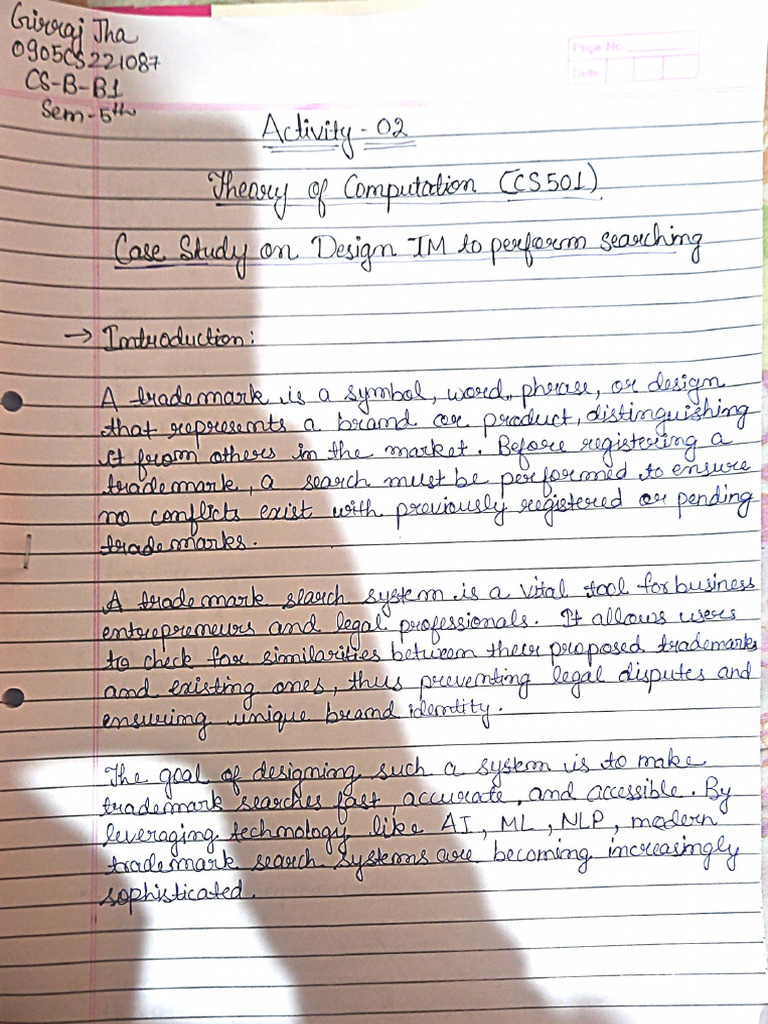 Girraj Jha
0905CS221087
CS-B-B1
Sem-5th
Page No.
Date
Activity-02
Theory of Computation (CS501)
Case Study on Design TM to perform searching
→ Introduction:
A trademark is a symbol, word, phrase, or design
that represents a brand or product, distinguishing
it from others in the market. Before registering a
trademark, a search must be performed to ensure
no conflicts exist with previously registered or pending
trademarks.
A trademark search system is a vital tool for business
entrepreneurs and legal professionals. It allows users
to check for similarities between their proposed trademarks
and existing ones, thus preventing legal disputes and
ensuring unique brand identity.
The goal of designing such a system is to make
trademark searches fast, accurate, and accessible. By
leveraging technology like AI, ML, NLP, modern
trademark search systems are becoming increasingly
sophisticated.